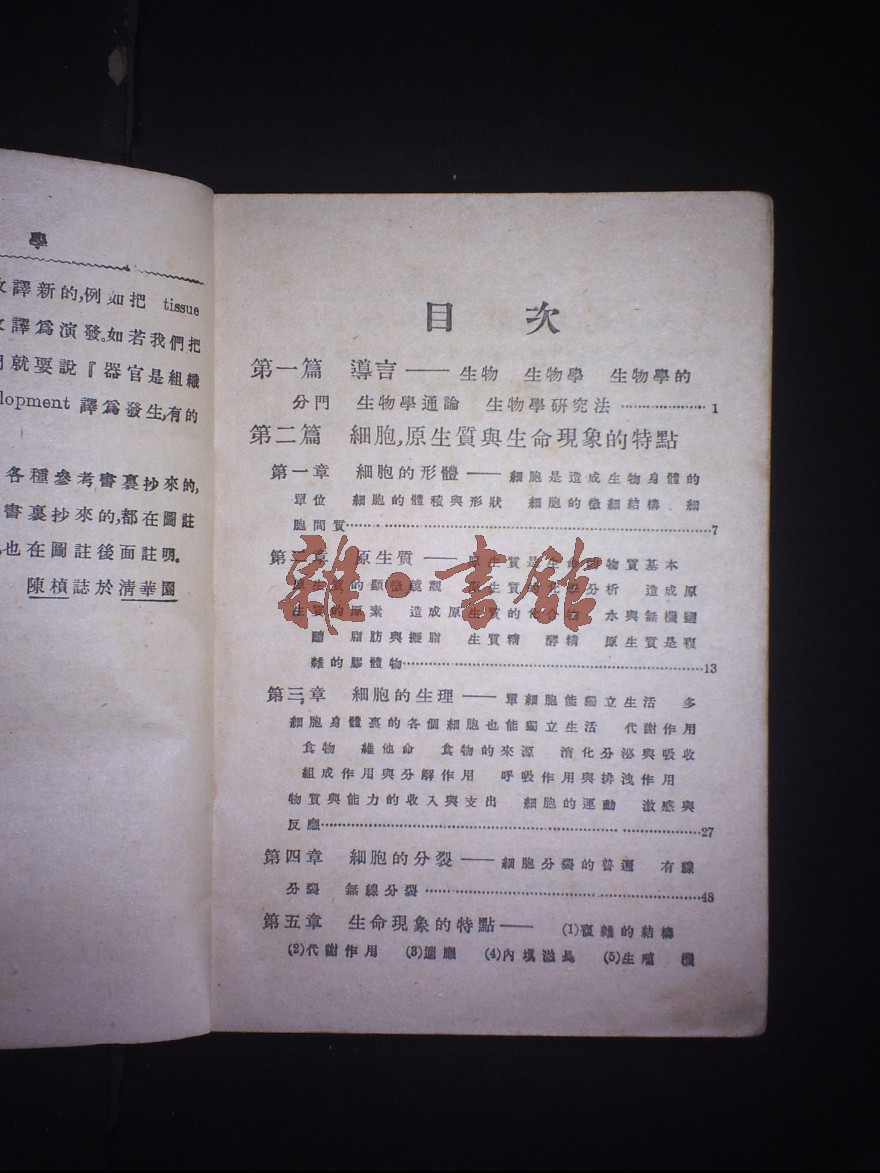 學
譯新的,例如把 tissue
譯爲演發。如若我們把
就要說『器官是組織
lopment 譯爲發生,有的
各種參考書裏抄來的,
書裏抄來的,都在圖註
也在圖註後面註明。
陳楨誌於清華園
目次
第一篇 導言—— 生物 生物學 生物學的
分門 生物學通論 生物學研究法 ……………… 1
第二篇 細胞,原生質與生命現象的特點
第一章 細胞的形體 —— 細胞是造成生物身體的
單位 細胞的體積與形狀 細胞的微細結構 細
胞間質………………………………………………7
第二章 原生質 —— 原生質是生命的物質基本
原生質的顯微鏡觀 原生質的化學分析 造成原
生質的原素 造成原生質的化合物 水與無機鹽
醣 脂肪與擬脂 生質精 酵精 原生質是複
雜的膠體物………………………………………………13
第三章 細胞的生理 —— 單細胞能獨立生活 多
細胞身體裏的各個細胞也能獨立生活 代謝作用
食物 維他命 食物的來源 消化分泌與吸收
組成作用與分解作用 呼吸作用與排洩作用
物質與能力的收入與支出 細胞的運動 激感與
反應………………………………………………27
第四章 細胞的分裂 —— 細胞分裂的普遍 有線
分裂 無線分裂………………………………………48
第五章 生命現象的特點—— (1)複雜的結構
(2)代謝作用 (3)適應 (4)內填滋長 (5)生殖 機
雜·書館